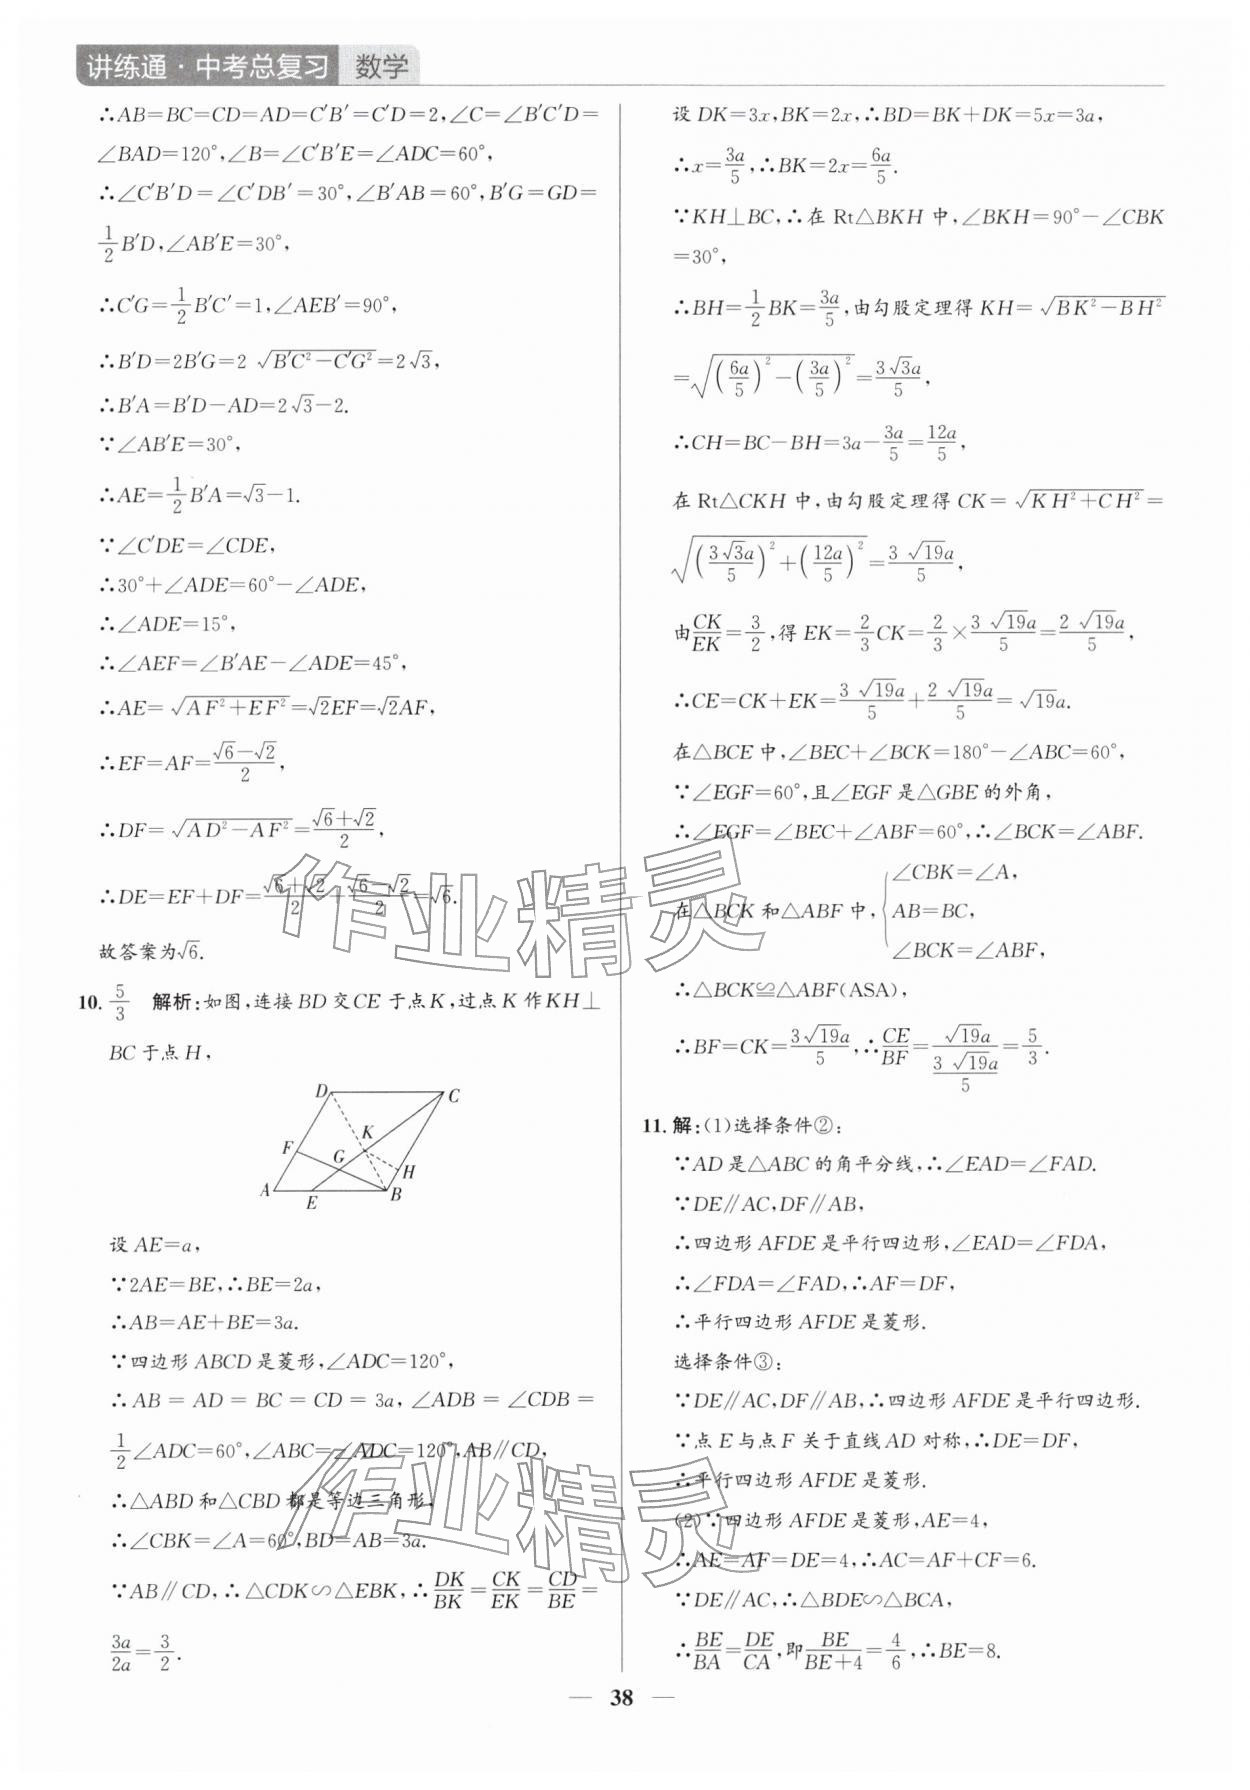 讲练通·中考总复习 数学
∴AB=BC=CD=AD=C′B′=C′D=2,∠C=∠B′C′D=
∠BAD=120°,∠B=∠C′B′E=∠ADC=60°,
∴∠C′B′D=∠C′DB′=30°,∠B′AB=60°,B′G=GD=
1/2 B′D,∠AB′E=30°,
∴C′G=1/2 B′C′=1,∠AEB′=90°,
∴B′D=2B′G=2 √(B′C²-C′G²)=2√3,
∴B′A=B′D-AD=2√3-2.
∵∠AB′E=30°,
∴AE=1/2 B′A=√3-1.
∵∠C′DE=∠CDE,
∴30°+∠ADE=60°-∠ADE,
∴∠ADE=15°,
∴∠AEF=∠B′AE-∠ADE=45°,
∴AE=√(AF²+EF²)=√2EF=√2AF,
∴EF=AF=(√6-√2)/2,
∴DF=√(AD²-AF²)=(√6+√2)/2,
∴DE=EF+DF=(√6+√2)/2+(√6-√2)/2=√6.
故答案为√6.
10. 5/3 解析:如图,连接BD交CE于点K,过点K作KH⊥
BC于点H,
D C
K
F G H
A E B
设AE=a,
∵2AE=BE,∴BE=2a,
∴AB=AE+BE=3a.
∵四边形ABCD是菱形,∠ADC=120°,
∴AB=AD=BC=CD=3a,∠ADB=∠CDB=
1/2∠ADC=60°,∠ABC=∠ADC=120°,AB∥CD,
∴△ABD和△CBD都是等边三角形,
∴∠CBK=∠A=60°,BD=AB=3a.
∵AB∥CD,∴△CDK∽△EBK,∴DK/BK=CK/EK=CD/BE=
3a/2a=3/2.
设DK=3x,BK=2x,∴BD=BK+DK=5x=3a,
∴x=3a/5,∴BK=2x=6a/5.
∵KH⊥BC,∴在Rt△BKH中,∠BKH=90°-∠CBK
=30°,
∴BH=1/2 BK=3a/5,由勾股定理得KH=√(BK²-BH²)
=√((6a/5)²-(3a/5)²)=3√3a/5,
∴CH=BC-BH=3a-3a/5=12a/5,
在Rt△CKH中,由勾股定理得CK=√(KH²+CH²)=
√((3√3a/5)²+(12a/5)²)=3√19a/5,
由CK/EK=3/2,得EK=2/3 CK=2/3×3√19a/5=2√19a/5,
∴CE=CK+EK=3√19a/5+2√19a/5=√19a.
在△BCE中,∠BEC+∠BCK=180°-∠ABC=60°,
∵∠EGF=60°,且∠EGF是△GBE的外角,
∴∠EGF=∠BEC+∠ABF=60°,∴∠BCK=∠ABF.
∠CBK=∠A,
在△BCK和△ABF中,{AB=BC,
∠BCK=∠ABF,
∴△BCK≌△ABF(ASA),
∴BF=CK=3√19a/5,∴CE/BF=√19a/(3√19a/5)=5/3.
11.解:(1)选择条件②:
∵AD是△ABC的角平分线,∴∠EAD=∠FAD.
∵DE∥AC,DF∥AB,
∴四边形AFDE是平行四边形,∠EAD=∠FDA,
∴∠FDA=∠FAD,∴AF=DF,
∴平行四边形AFDE是菱形.
选择条件③:
∵DE∥AC,DF∥AB,∴四边形AFDE是平行四边形.
∵点E与点F关于直线AD对称,∴DE=DF,
∴平行四边形AFDE是菱形.
(2)∵四边形AFDE是菱形,AE=4,
∴AE=AF=DE=4,∴AC=AF+CF=6.
∵DE∥AC,∴△BDE∽△BCA,
∴BE/BA=DE/CA,即BE/(BE+4)=4/6,∴BE=8.
— 38 —
作业精灵
作业精灵